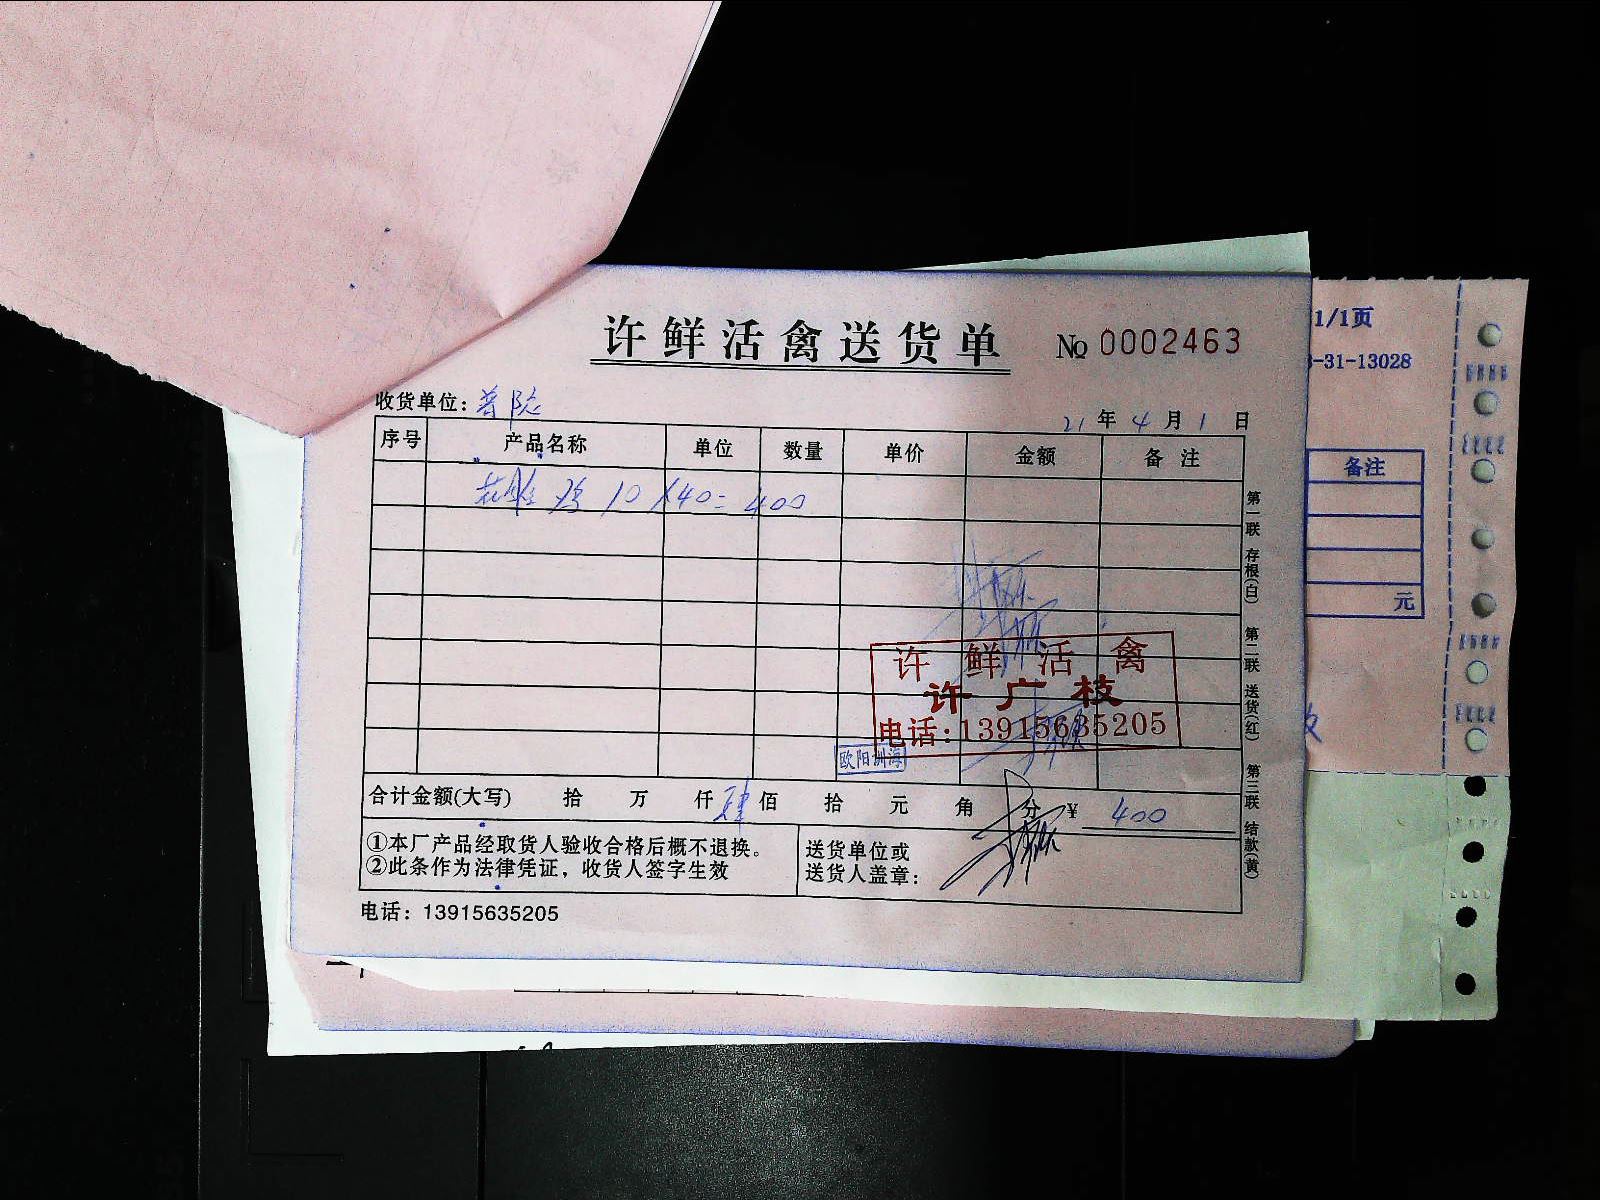 许鲜活禽送货单 № 0002463
1/1页
-31-13028
收货单位: 普
21年4月1日
序号 产品名称 单位 数量 单价 金额 备注
备注
鸡 10 X40= 400
元
许鲜活禽
许广枝
电话:13915635205
欧阳洲海
合计金额(大写) 拾 万 仟 肆佰 拾 元 角 分 ¥ 400
①本厂产品经取货人验收合格后概不退换。
②此条作为法律凭证，收货人签字生效
送货单位或
送货人盖章:
电话: 13915635205
第一联 存根(白) 第二联 送货(红) 第三联 结款(黄)